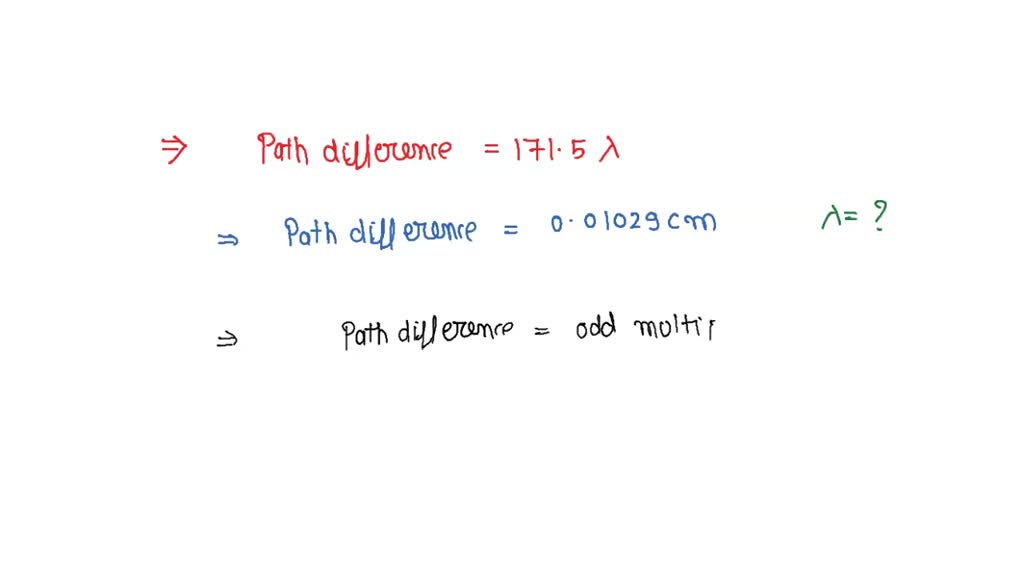 ⇒ Path difference = 171.5 λ
⇒ Path difference = 0.01029 cm λ = ?
⇒ Path difference = odd multip